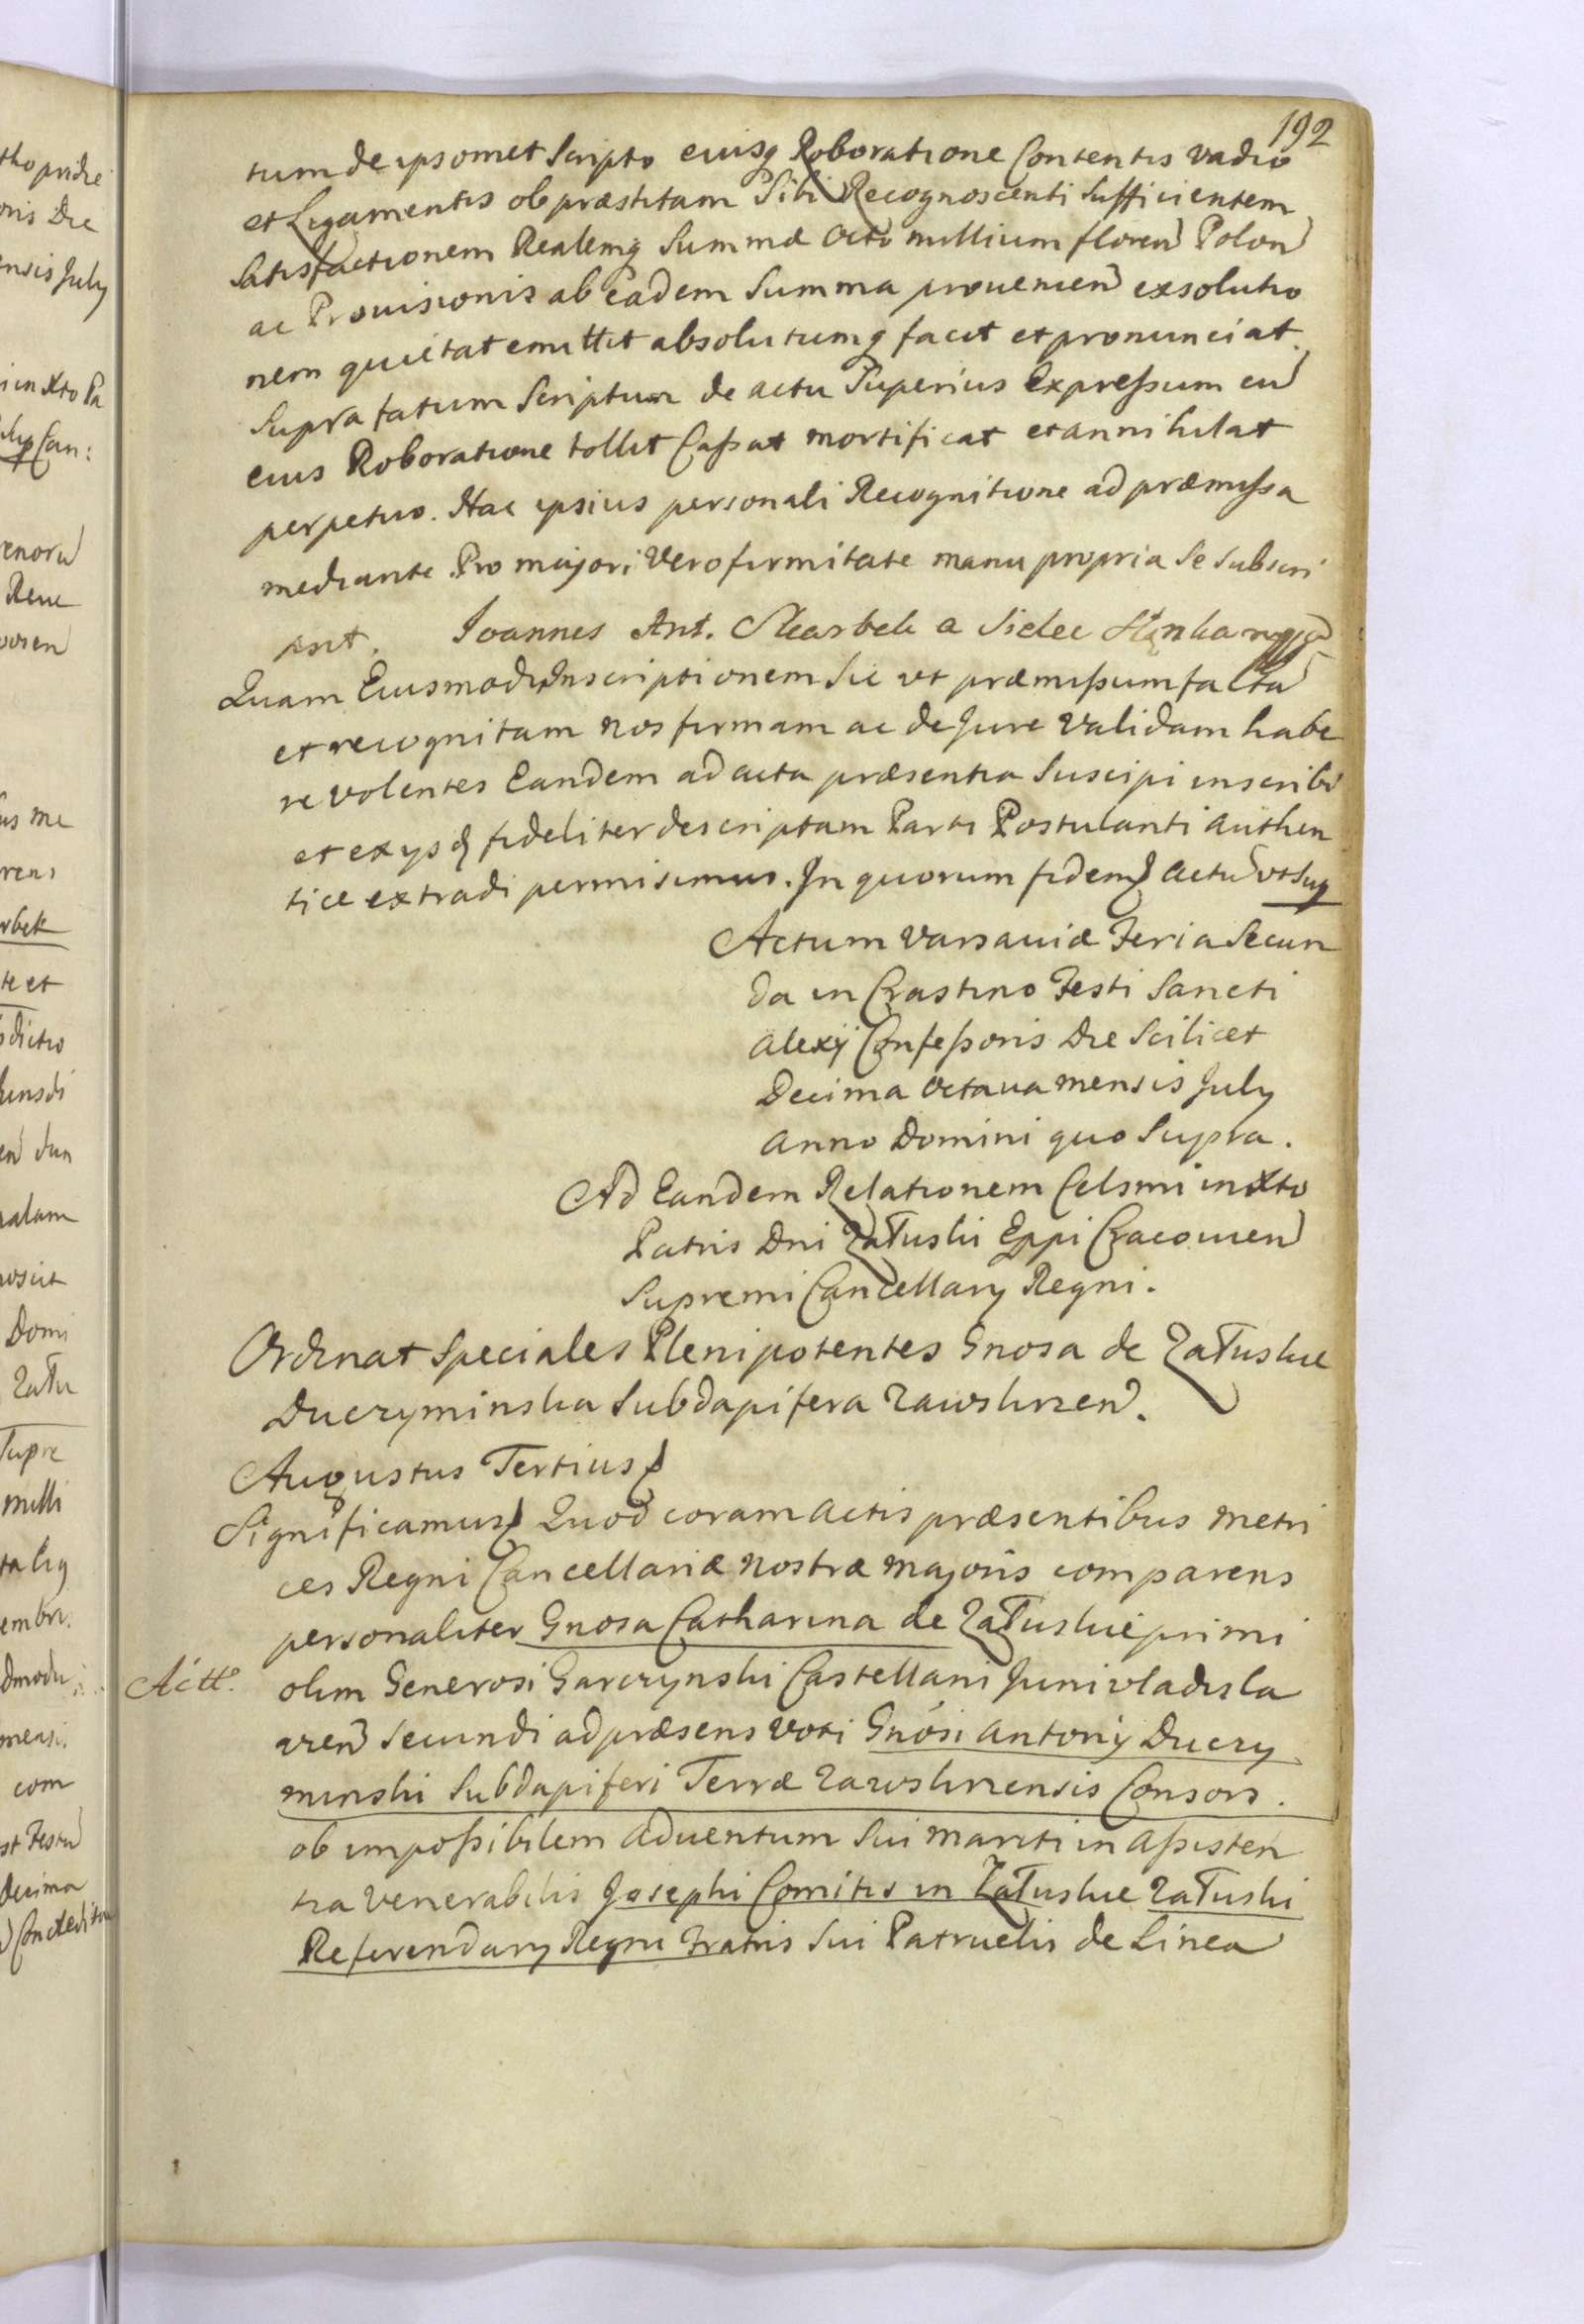 192
tum de ipsomet Scripto eiusq Roboratione Contentis vadio
et Ligamentis ob præstitam Sibi Recognoscenti Sufficientem
Satisfactionem Realemq Summæ Octo millium floren Polon
ac Prouisionis ab Eadem Summa prouenien exsolutio
nem quietat emittit absolutumq facit et pronunciat.
Supra fatum Scriptum de actu Superius Expressum cu
eius Roboratione tollit Cassat mortificat et annihilat
perpetuo. Hac ipsius personali Recognitione ad præmissa
mediante. Pro majori Vero firmitate manu propria Se Subscri
psit. Joannes Ant. Skarbek a Sielec
Quam Eiusmodi Inscriptionem Sic vt præmissum facta
et recognitam nos firmam ac de Jure Validam habe
re volentes Eandem ad acta præsentia Suscipi inscribi
et ex ys fideliter descriptam Parti Postulanti authen
tice extradi permisimus. In quorum fidem actu vt Sup
Actum Varsauiæ Feria Secun
da in Crastino Festi Sancti
Alexij Confessoris Die Scilicet
Decima Octaua mensis July
Anno Domini quo Supra.
Ad Eandem Relationem Celsmi in Xto
Patris Dni Załuski Eppi Cracouien
Supremi Cancellary Regni.
Ordinat Speciales Plenipotentes Gnosa de Załuskie
Duczyminska Subdapifera Zawskrzen.
Augustus Tertius
Significamus Quod coram Actis præsentibus Metri
ces Regni Cancellariæ nostræ Majoris comparens
personaliter Gnosa Catharina de Załuskie primi
Actt.
olim Generosi Garczynski Castellani Junivladisla
vien Secundi ad præsens voti Gnosi Antonij Duczy
minski Subdapiferi Terræ Zawskrzensis Consors.
ob impossibilem Aduentum Sui Mariti in Assisten
tia Venerabilis Josephi Comitis in Załuskie Załuski
Referendary Regni Fratris Sui Patruelis de Linea